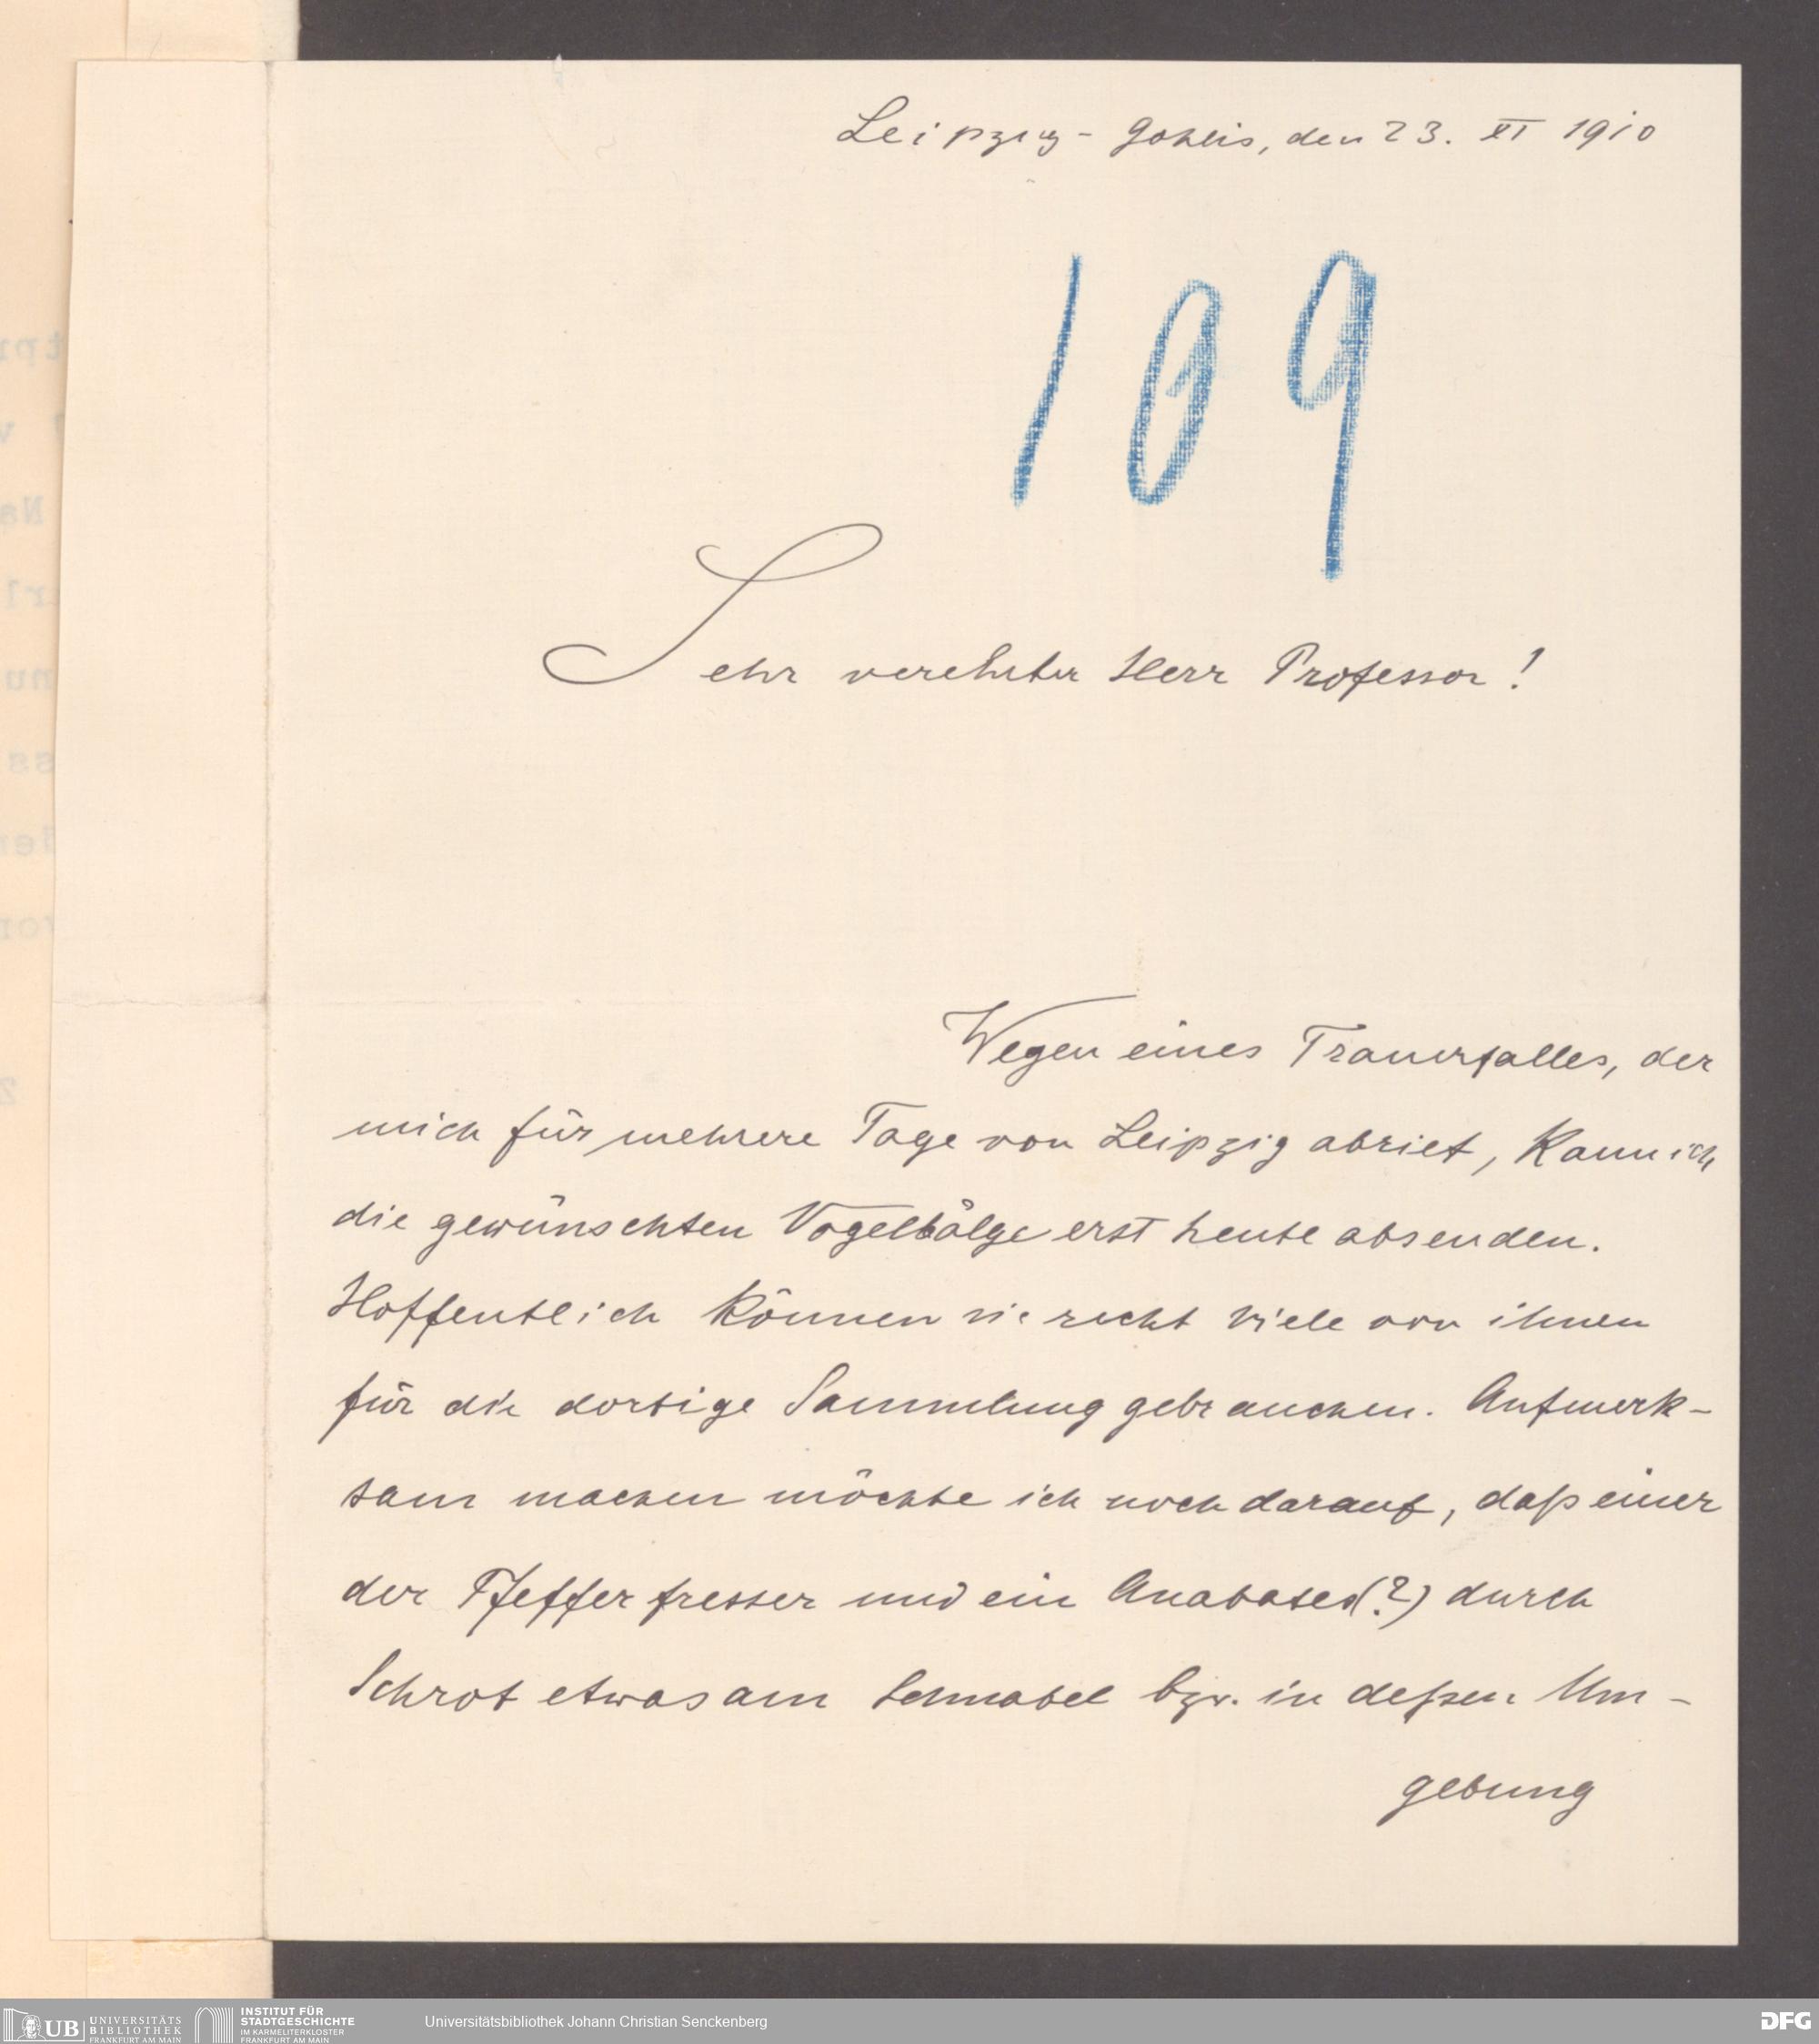 Leipzig-Gohlis, den 23. XI 1910
109
Sehr verehrter Herr Professor!
Wegen eines Trauerfalles, der
mich für mehrere Tage von Leipzig abrief, kann ich
die gewünschten Vogelbälge erst heute absenden.
Hoffentlich können sie recht viele von ihnen
für die dortige Sammlung gebrauchen. Aufmerk-
sam machen möchte ich noch darauf, daß einer
der Pfefferfresser und ein Anabates(?) durch
Schrot etwas am Schnabel bzw. in deßen Um-
gebung
UB UNIVERSITÄTS BIBLIOTHEK FRANKFURT AM MAIN
INSTITUT FÜR STADTGESCHICHTE IM KARMELITERKLOSTER FRANKFURT AM MAIN
Universitätsbibliothek Johann Christian Senckenberg
DFG